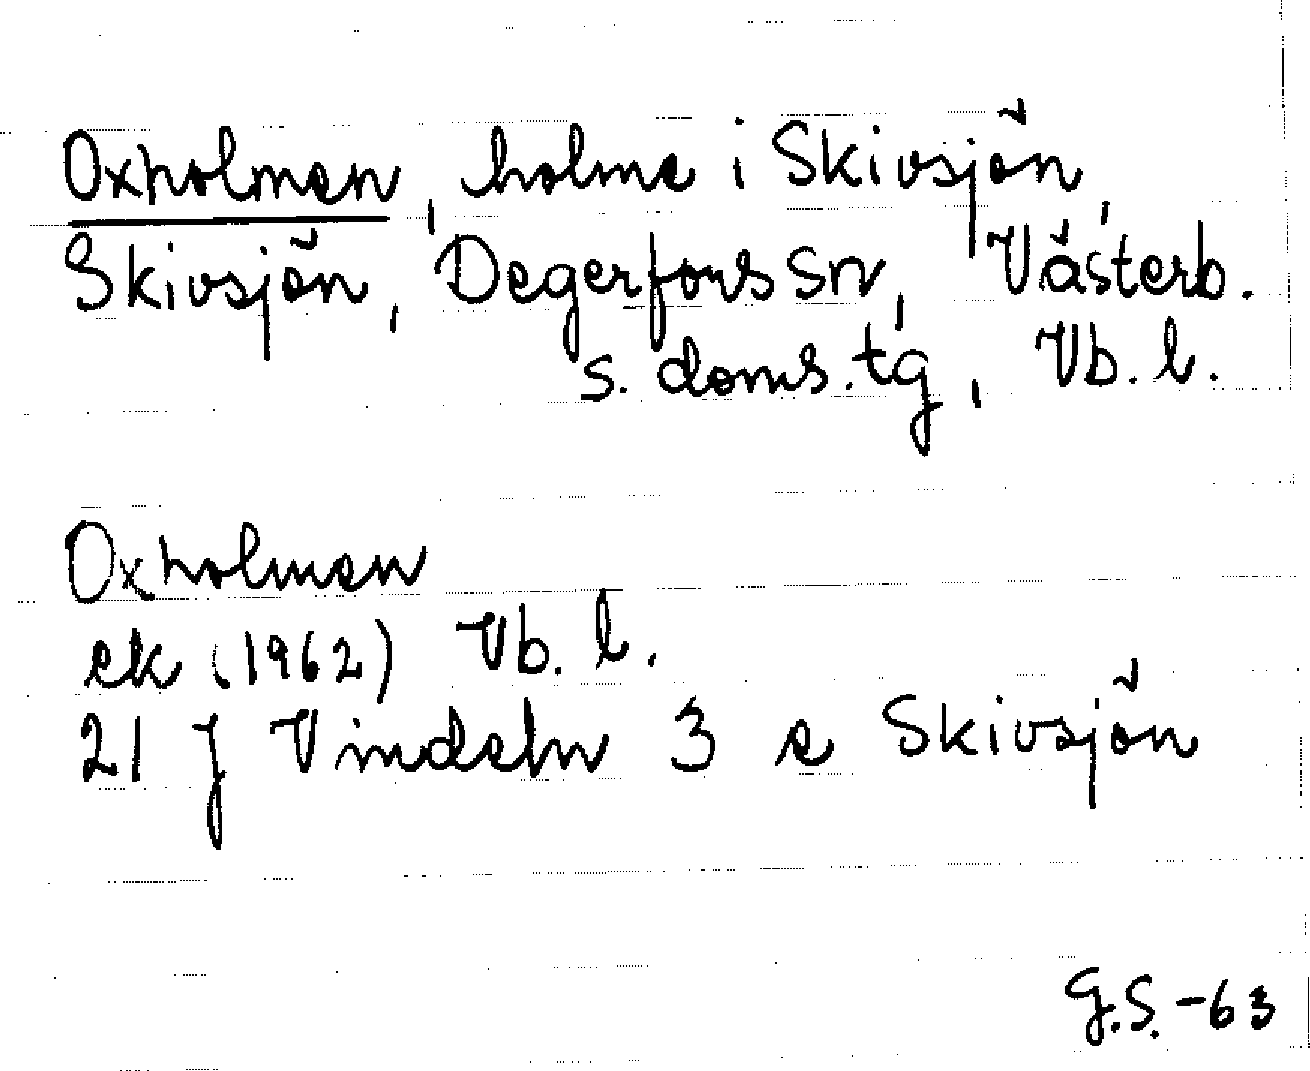 Oxholmen, holme i Skivsjön,
Skivsjön, Degerfors sn, Västerb.
s. doms. tg, Vb. l.
Oxholmen
ek (1962) Vb. l.
21 J Vindeln 3 e Skivsjön
G.S. -63